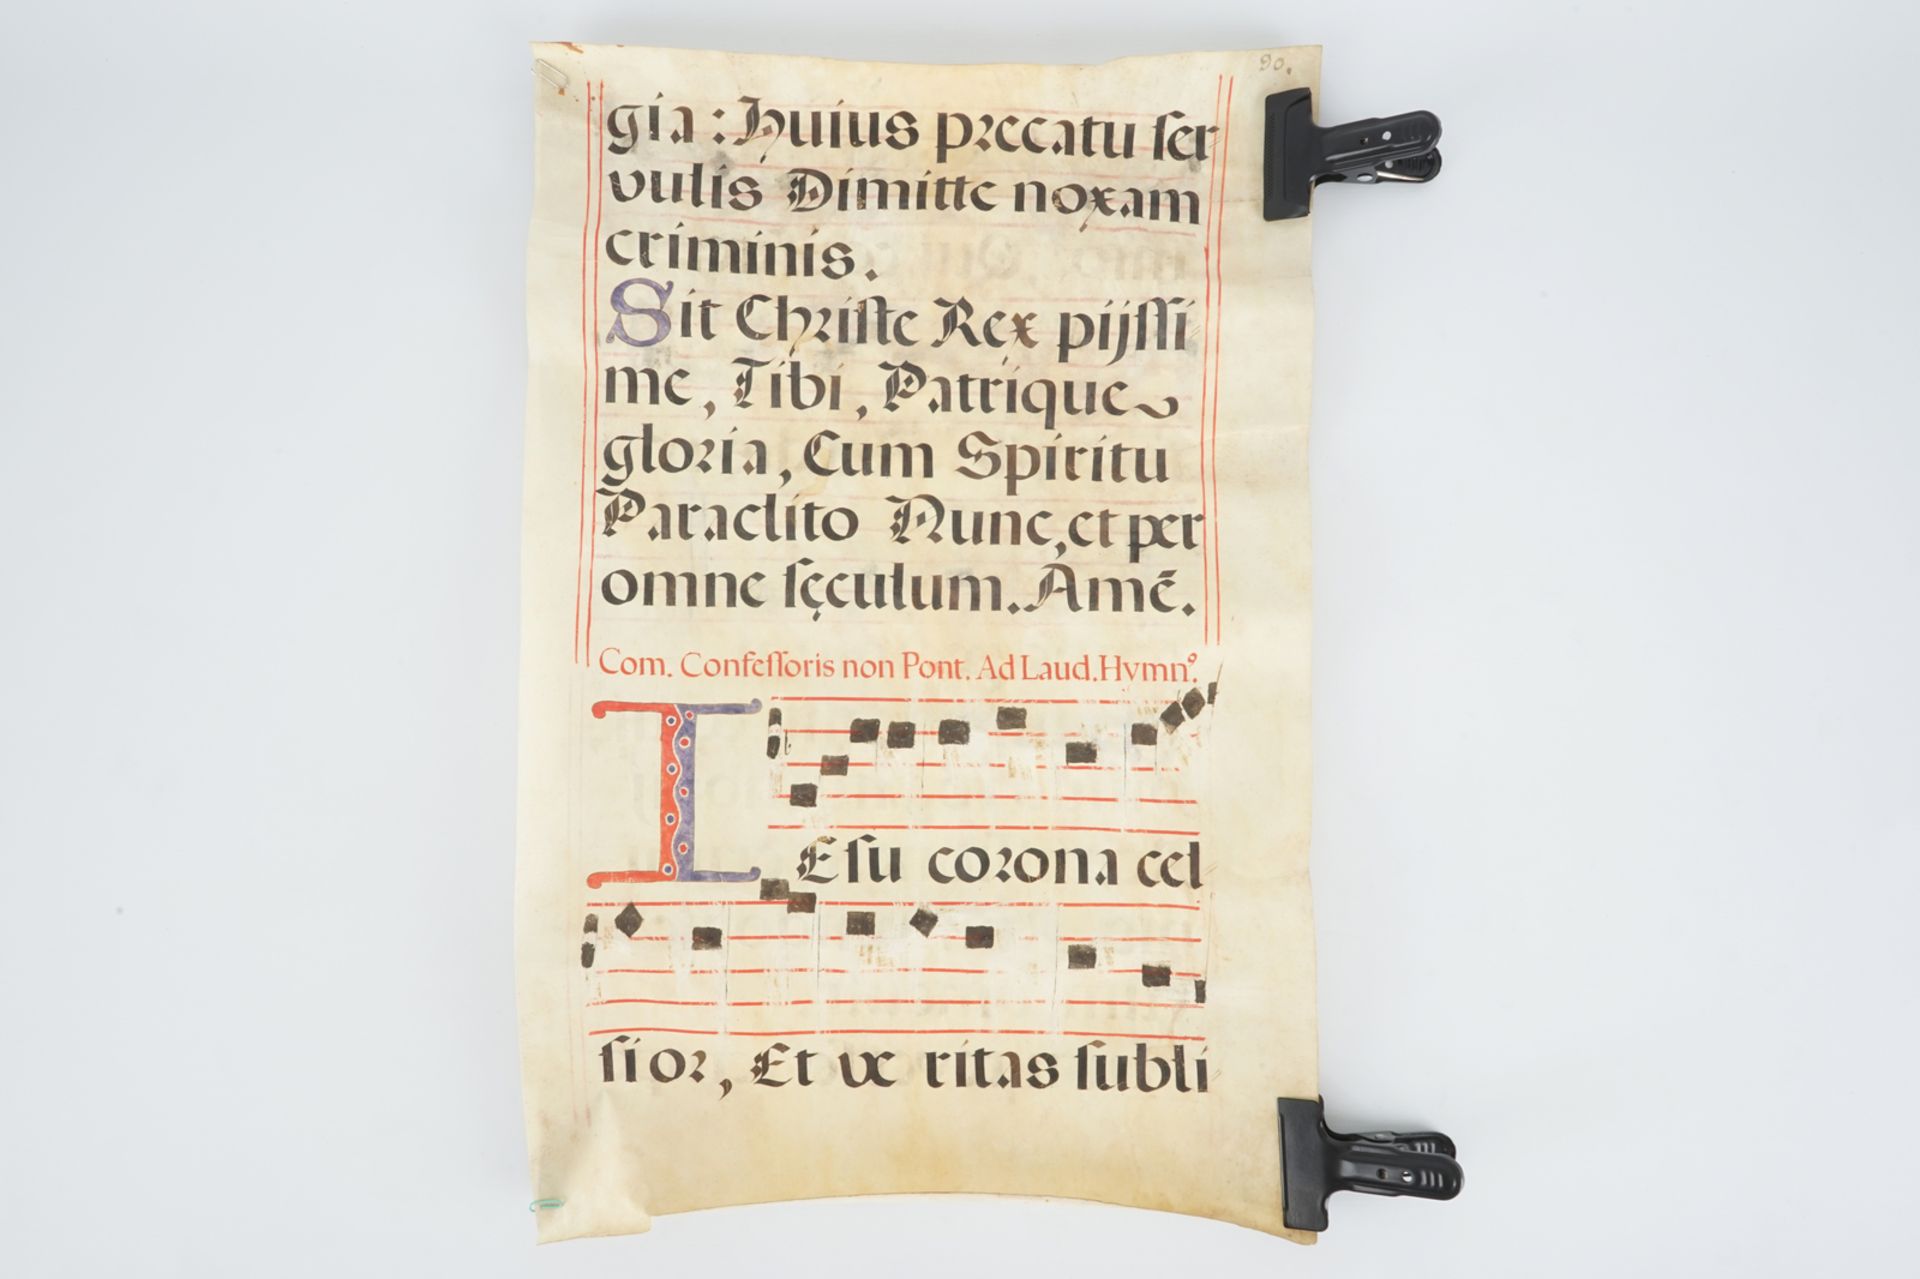 90.
gia: Huius precatu ser
vulis Dimitte noxam
criminis.
Sit Christe Rex pijssi
me, Tibi, Patrique
gloria, Cum Spiritu
Paraclito Nunc, et per
omne sęculum. Amē.
Com. Confessoris non Pont. Ad Laud. Hymnº.
IEsu corona cel
sior, Et ve ritas subli